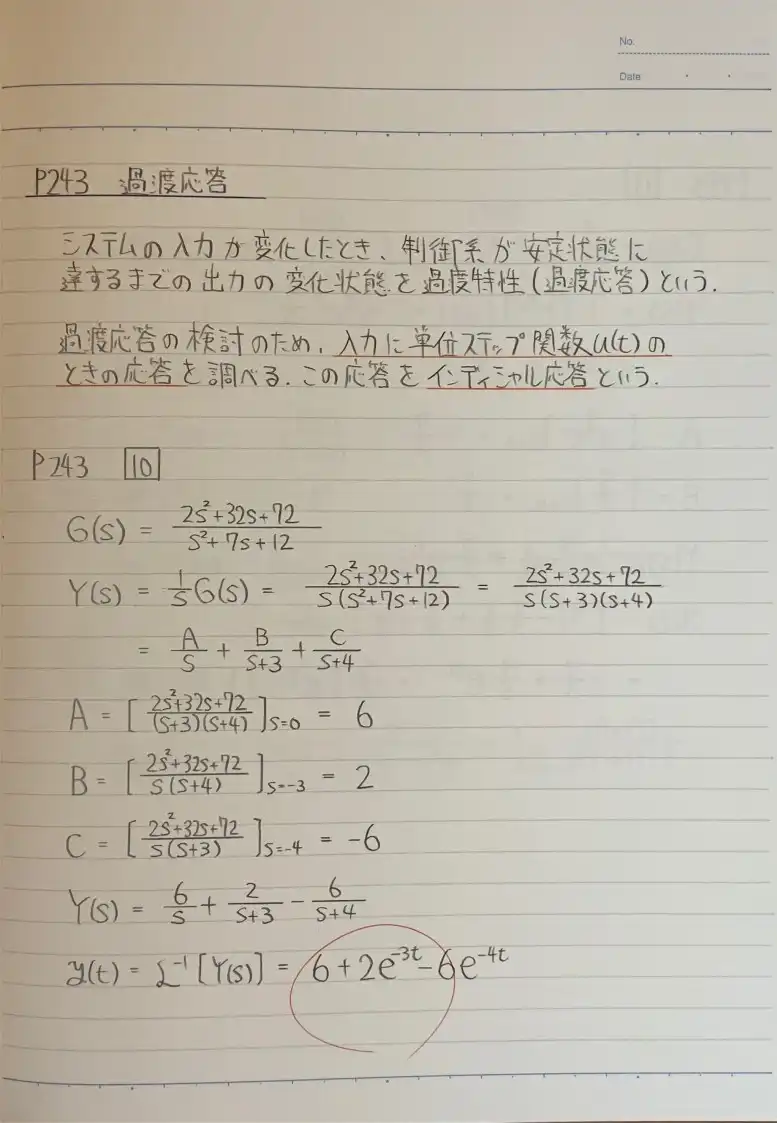 No.
Date
P243 過渡応答
システムの入力が変化したとき、制御系が安定状態に
達するまでの出力の変化状態を過度特性(過渡応答)という.
過渡応答の検討のため、入力に単位ステップ関数u(t)の
ときの応答を調べる. この応答をインディシャル応答という.
P243 10
G(s) = (2s²+32s+72)/(s²+7s+12)
Y(s) = (1/s)G(s) = (2s²+32s+72)/(s(s²+7s+12)) = (2s²+32s+72)/(s(s+3)(s+4))
= A/s + B/(s+3) + C/(s+4)
A = [(2s²+32s+72)/((s+3)(s+4))]s=0 = 6
B = [(2s²+32s+72)/(s(s+4))]s=-3 = 2
C = [(2s²+32s+72)/(s(s+3))]s=-4 = -6
Y(s) = 6/s + 2/(s+3) - 6/(s+4)
y(t) = L⁻¹[Y(s)] = 6+2e^-3t-6e^-4t